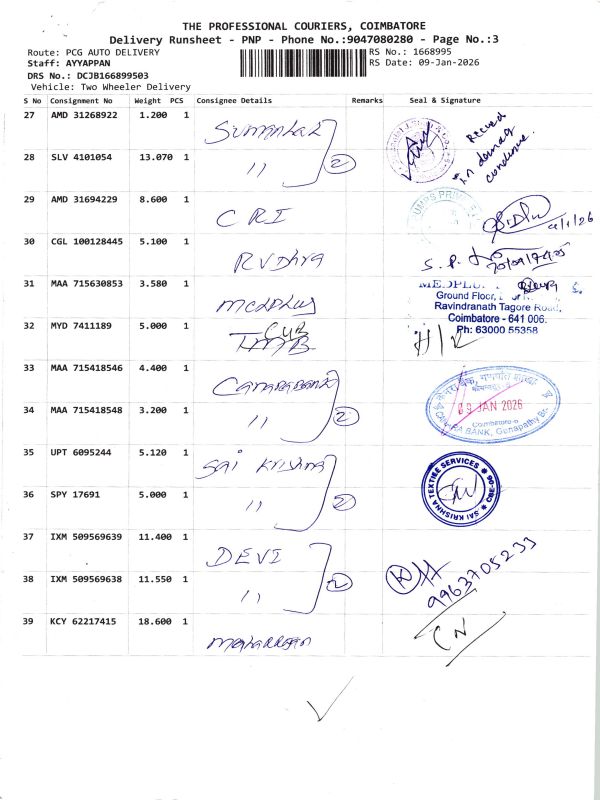 THE PROFESSIONAL COURIERS, COIMBATORE
Delivery Runsheet - PNP - Phone No.:9047080280 - Page No.:3
Route: PCG AUTO DELIVERY
RS No.: 1668995
Staff: AYYAPPAN
RS Date: 09-Jan-2026
DRS No.: DCJB166899503
Vehicle: Two Wheeler Delivery
S No Consignment No Weight PCS Consignee Details Remarks Seal & Signature
27 AMD 31268922 1.200 1
28 SLV 4101054 13.070 1 " 2
29 AMD 31694229 8.600 1 CRI
30 CGL 100128445 5.100 1
31 MAA 715630853 3.580 1 medplus
Ground Floor,
Ravindranath Tagore Road,
Coimbatore - 641 006.
Ph: 63000 55358
32 MYD 7411189 5.000 1 CUB
33 MAA 715418546 4.400 1 Canara Bank
09 JAN 2026
34 MAA 715418548 3.200 1 " 2
35 UPT 6095244 5.120 1 Sai Krishna
SAI KRISHNA TEXTILE SERVICES
36 SPY 17691 5.000 1 " 2
37 IXM 509569639 11.400 1 DEVI
9963705233
38 IXM 509569638 11.550 1 " 2
39 KCY 62217415 18.600 1